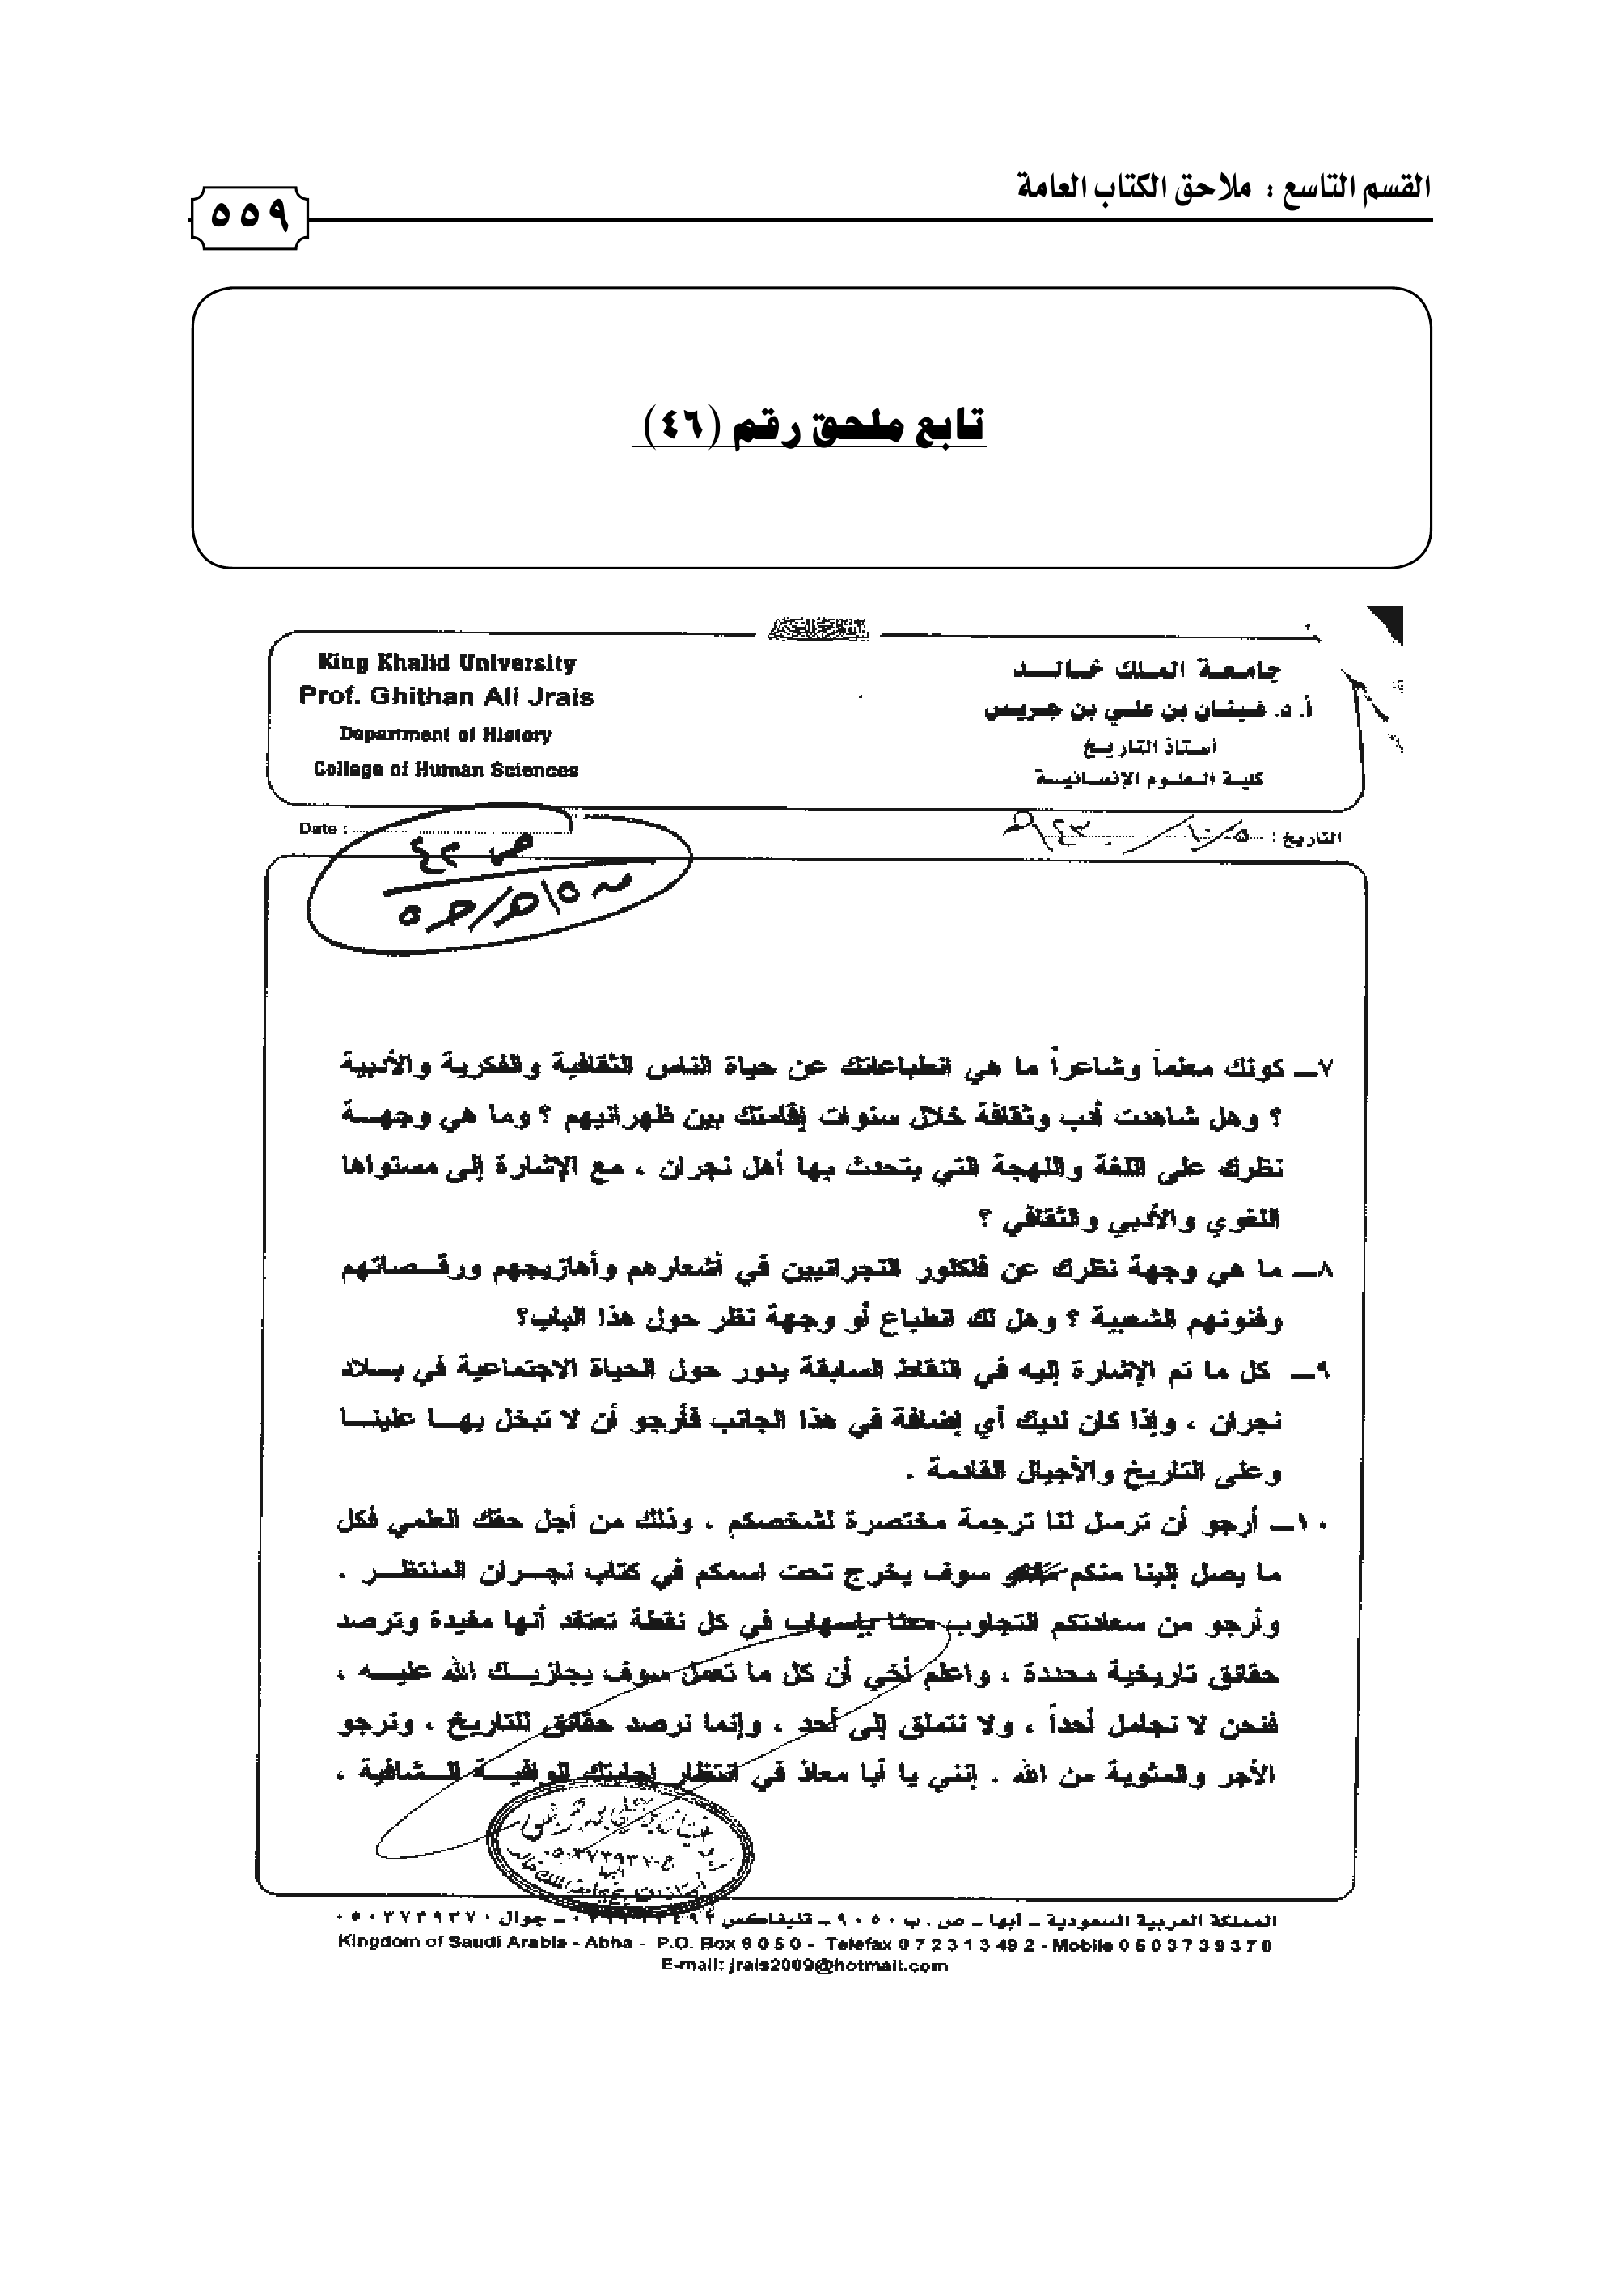 القسم التاسع : ملاحق الكتاب العامة
٥٥٩
تابع ملحق رقم (٤٦)
King Khalid University
Prof. Ghithan Ali Jrais
Department of History
College of Human Sciences
جامعة الملك خالد
أ. د. غيثان بن علي بن جريس
أستاذ التاريخ
كلية العلوم الإنسانية
Date :
التاريخ :
٧ــ كونك معلماً وشاعراً ما هي انطباعاتك عن حياة الناس الثقافية والفكرية والأدبية
؟ وهل شاهدت أدب وثقافة خلال سنوات إقامتك بين ظهرانيهم ؟ وما هي وجهة
نظرك على اللغة واللهجة التي يتحدث بها أهل نجران ، مع الإشارة إلى مستواها
اللغوي والأدبي والثقافي ؟
٨ــ ما هي وجهة نظرك عن فلكلور النجرانيين في أشعارهم وأهازيجهم ورقصاتهم
وفنونهم الشعبية ؟ وهل لك انطباع أو وجهة نظر حول هذا الباب؟
٩ــ كل ما تم الإشارة إليه في النقاط السابقة يدور حول الحياة الاجتماعية في بلاد
نجران ، وإذا كان لديك أي إضافة في هذا الجانب فأرجو أن لا تبخل بها علينا
وعلى التاريخ والأجيال القادمة .
١٠ــ أرجو أن ترسل لنا ترجمة مختصرة لشخصكم . وذلك من أجل حقك العلمي فكل
ما يصل إلينا منكم سوف يخرج تحت اسمكم في كتاب نجران المنتظر .
وأرجو من سعادتكم التجاوب معنا بإسهاب في كل نقطة تعتقد أنها مفيدة وترصد
حقائق تاريخية محددة ، واعلم أخي أن كل ما تعمل سوف يجازيك الله عليه ،
فنحن لا نجامل أحداً ، ولا نتملق إلى أحد ، وإنما نرصد حقائق للتاريخ ، ونرجو
الأجر والمثوبة من الله . إنني يا أبا معاذ في انتظار إجابتك الوافية الشافية ،
المملكة العربية السعودية ــ أبها ــ ص . ب ٩٠٥٠ ــ تليفاكس ــ جوال ٠٥٠٣٧٣٩٣٧٠
Kingdom of Saudi Arabia - Abha - P.O. Box 9050 - Telefax 072313492 - Mobile 0503739370
E-mail: jrais2009@hotmail.com